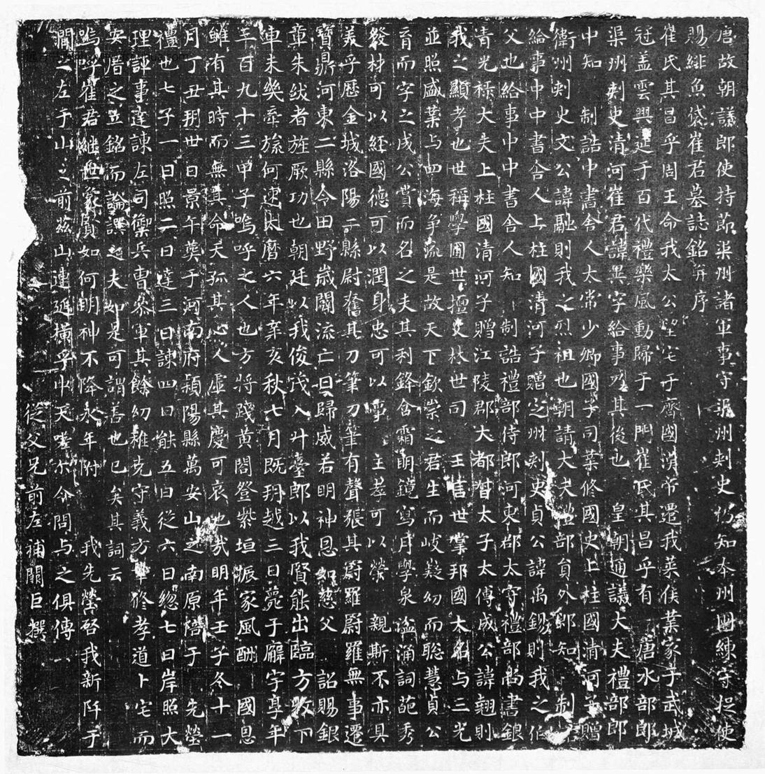 唐故朝議郎使持節渠州諸軍事守渠州刺史仍知本州團練守捉使
賜緋魚袋崔君墓誌銘并序
崔氏其昌乎周王命我太公望宅于齊國漢帝還我萊侯葉家于武城
冠蓋雲興延于百代禮樂風動歸于一門崔氏其昌乎有 唐水部郎
渠州刺史清河崔君諱異字給事丕其後也 皇朝通議大夫禮部郎
中知 制誥中書舍人太常少卿國子司業修國史上柱國清河子贈
衛州刺史文公諱融則我之烈祖也朝請大夫禮部員外郎知 制
給事中中書舍人上柱國清河子贈定州刺史貞公諱禹錫則我之伯
父也給事中中書舍人知 制誥禮部侍郎河東郡太守禮部尚書銀
青光祿大夫上柱國清河子贈江陵郡大都督太子太傅成公諱翹則
我之顯考也世稱學圃世擅文林世司 王言世掌邦國大名与三光
並照盛業与四海爭流是故天下欽崇之君生而岐嶷幼而聰慧貞公
育而字之成公賞而名之夫其利鋒含霜明鏡寫月學泉溢涌詞苑秀
發材可以經國德可以潤身忠可以事 主孝可以榮 親斯不亦具
美乎歷金城洛陽二縣尉奮其刀筆刀筆有聲張其罻羅罻羅無事遷
寶鼎河東二縣令田野歲闢流亡日歸威若明神恩 慈父 詔賜銀
章朱紱者旌厥功也朝廷以我俊茂入升臺郎以我賢能出臨方 下
車未幾 旐何速大曆六年辛亥秋七月既玥越三日薨于廨宇享年
三百九十三甲子嗚呼之人也方將踐黃閤登紫垣振家風酬 國恩
雖有其時而無其命夭孤其心人虛其慶可哀也哉明年壬子冬十一
月丁丑朔廿日景午葬于河南府潁陽縣萬安山之南原祔于 先塋
禮也七子一曰照二曰達三曰諫四曰能五曰從六曰總七曰岸照大
理評事達諫左司禦兵曹叅軍其餘幼稚克守義方 修孝道卜宅而
安厝之 銘而論譔 夫如是可謂善也已矣其詞云
嗚呼崔君繼世家賢如何明神不降永年附 我先塋啓我新阡于
澗之左于山之前茲山連延橫乎中天嗟 令問与之俱傳
從父兄前左補闕巨撰